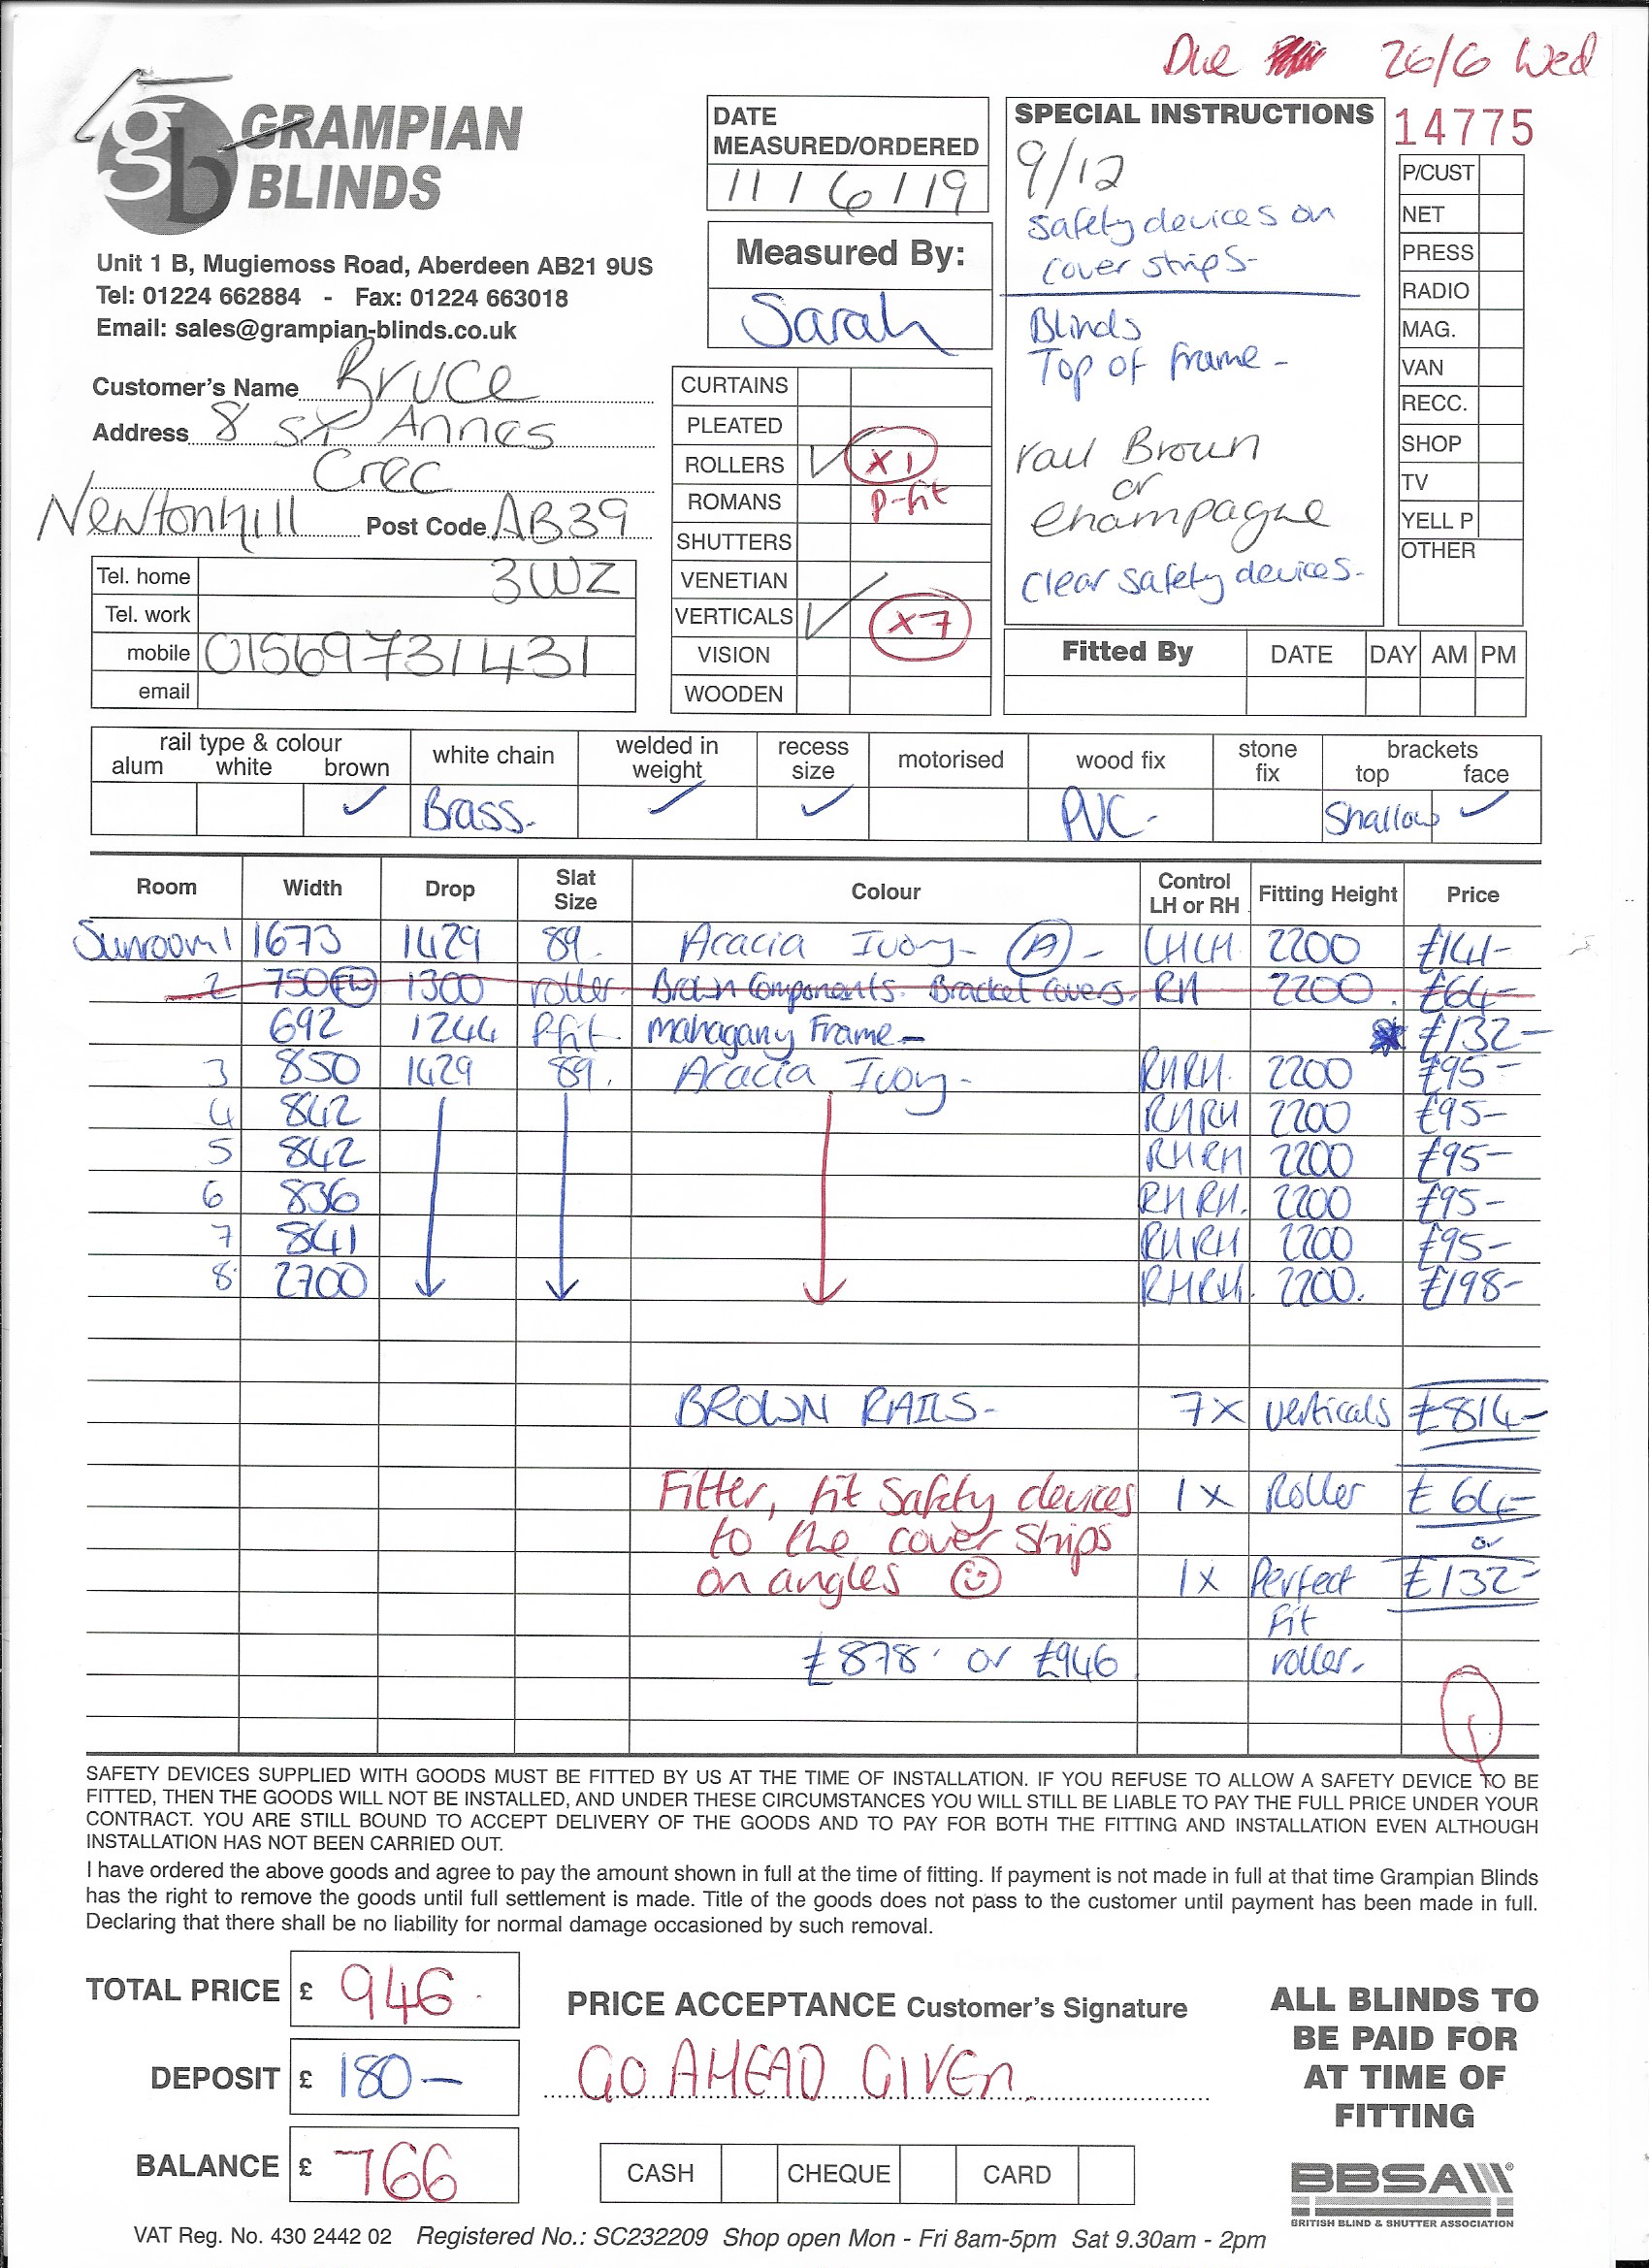 Due 26/6 Wed
GRAMPIAN
BLINDS
gb
Unit 1 B, Mugiemoss Road, Aberdeen AB21 9US
Tel: 01224 662884 - Fax: 01224 663018
Email: sales@grampian-blinds.co.uk
Customer's Name Bruce
Address 8 St Annes
Cres
Newtonhill Post Code AB39
3WZ
Tel. home
Tel. work
mobile 01569731431
email
DATE
MEASURED/ORDERED
11/6/19
Measured By:
Sarah
CURTAINS
PLEATED
ROLLERS ✓ x1
ROMANS P-fit
SHUTTERS
VENETIAN
VERTICALS ✓ x7
VISION
WOODEN
SPECIAL INSTRUCTIONS
9/12
Safety devices on
cover strips-
Blinds
Top of frame-
rail Brown
or
Champagne
Clear safety devices-
14775
P/CUST
NET
PRESS
RADIO
MAG.
VAN
RECC.
SHOP
TV
YELL P
OTHER
Fitted By DATE DAY AM PM
rail type & colour white chain welded in weight recess size motorised wood fix stone fix brackets
alum white brown top face
✓ Brass- ✓ ✓ PVC- Shallow ✓
Room Width Drop Slat Size Colour Control LH or RH Fitting Height Price
Sunroom 1 1673 1429 89. Acacia Ivory- (A)- LHLH 2200 £141-
2 750 1300 roller. Brown Components. Bracket covers. RH 2200. £64-
692 1244 P-fit. mahagany Frame- £132-
3 850 1429 89. Acacia Ivory- RHRH. 2200 £95-
4 842 RHRH 2200 £95-
5 842 RHRH 2200 £95-
6 836 RHRH. 2200 £95-
7 841 RHRH 2200 £95-
8 2700 RHRH. 2200. £198-
BROWN RAILS- 7x verticals £814-
Fitter, fit Safety devices 1x Roller £64-
to the cover strips or
on angles 1x Perfect £132-
Fit
£878 or £946 roller.
SAFETY DEVICES SUPPLIED WITH GOODS MUST BE FITTED BY US AT THE TIME OF INSTALLATION. IF YOU REFUSE TO ALLOW A SAFETY DEVICE TO BE
FITTED, THEN THE GOODS WILL NOT BE INSTALLED, AND UNDER THESE CIRCUMSTANCES YOU WILL STILL BE LIABLE TO PAY THE FULL PRICE UNDER YOUR
CONTRACT. YOU ARE STILL BOUND TO ACCEPT DELIVERY OF THE GOODS AND TO PAY FOR BOTH THE FITTING AND INSTALLATION EVEN ALTHOUGH
INSTALLATION HAS NOT BEEN CARRIED OUT.
I have ordered the above goods and agree to pay the amount shown in full at the time of fitting. If payment is not made in full at that time Grampian Blinds
has the right to remove the goods until full settlement is made. Title of the goods does not pass to the customer until payment has been made in full.
Declaring that there shall be no liability for normal damage occasioned by such removal.
TOTAL PRICE £ 946.
DEPOSIT £ 180-
BALANCE £ 766
PRICE ACCEPTANCE Customer's Signature
GO AHEAD GIVEN
CASH CHEQUE CARD
ALL BLINDS TO
BE PAID FOR
AT TIME OF
FITTING
BBSA
BRITISH BLIND & SHUTTER ASSOCIATION
VAT Reg. No. 430 2442 02 Registered No.: SC232209 Shop open Mon - Fri 8am-5pm Sat 9.30am - 2pm